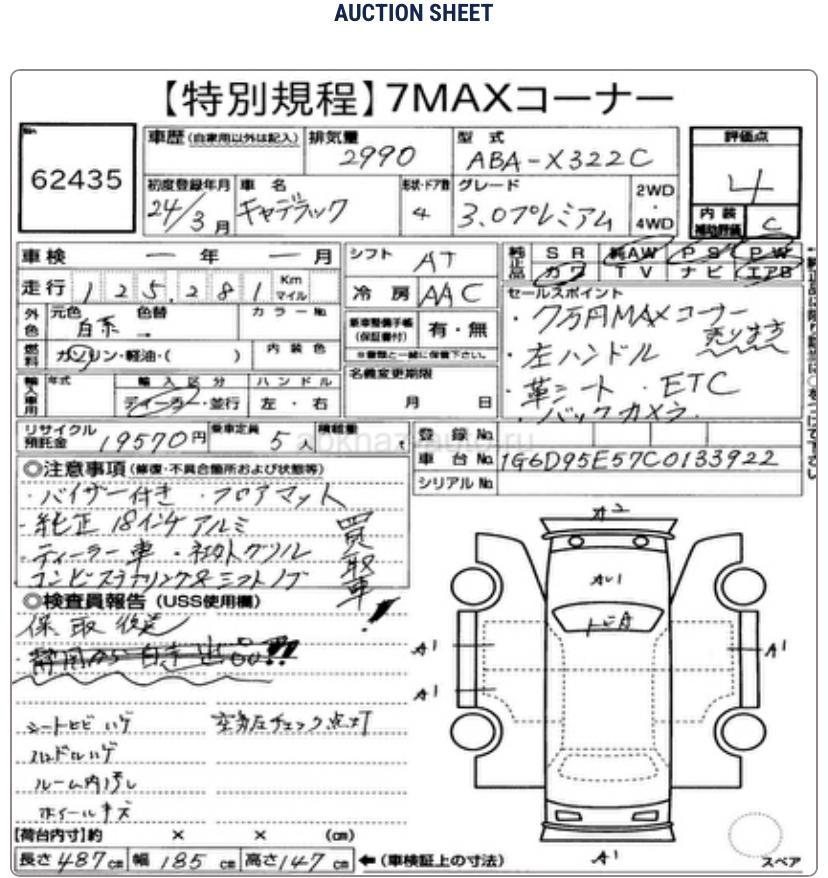 AUCTION SHEET
【特別規程】7MAXコーナー
No.
62435
車歴(自家用以外は記入) 排気量 型式 評価点
2990 ABA-X322C 4
初度登録年月 車名 形状・ドア数 グレード 2WD・4WD
24/3月 キャデラック 4 3.0プレミアム
内装補助評価 C
車検 ー 年 ー 月 シフト AT
純正品 SR 純AW PS PW
カワ TV ナビ エアB
走行 125,281 Km マイル
冷房 AAC
セールスポイント
・7万円MAXコーナー 売ります
・左ハンドル
・革シート ・ETC
・バックカメラ
外色 元色 色替 カラーNo.
白系 →
新車整備手帳(保証書付) 有・無
※書類と一緒に保管下さい。
燃料 ガソリン・軽油・( ) 内装色
名義変更期限
月 日
輸入車用 年式 輸入区分 ハンドル
ディーラー・並行 左・右
リサイクル預託金 19570円 乗車定員 5人 積載量 t
abkhaz-auto.ru
登録No.
車台No. 1G6D95E57C0133922
シリアルNo.
◎注意事項(修復・不具合箇所および状態等)
・バイザー付き ・フロアマット
・純正18インチアルミ
・ディーラー車 ・社外グリル
コンビステアリング&シフトノブ
買取車!
◎検査員報告(USS使用欄)
保取後送
シートヒビ ハゲ 空気圧チェック点灯
ハンドルハゲ
ルーム内汚レ
ホイールキズ
A2
AU1
トビ月
A1
A1
A1
A1
【荷台内寸】約 × × (cm)
長さ487cm 幅185cm 高さ147cm ←(車検証上の寸法)
スペア